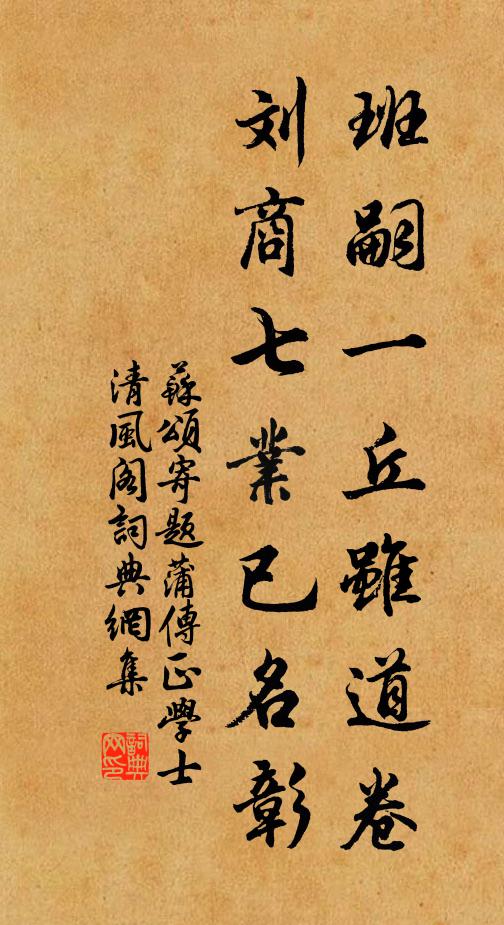 班嗣一丘雖道卷
刘商七業已名彰
蘇頌寄題蒲傳正學士
清風阁詞典網集
詞典网印